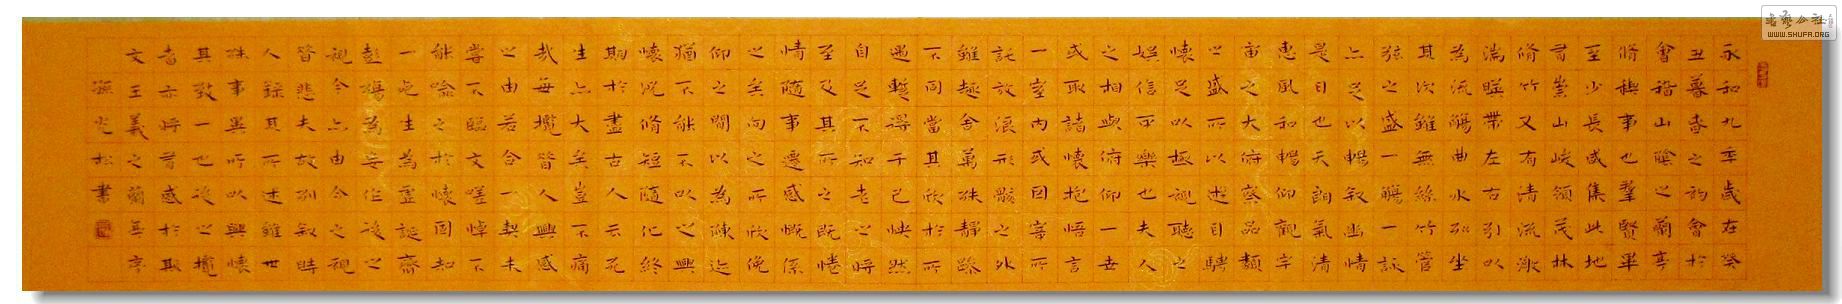 永和九年歲在癸
丑暮春之初會於
會稽山陰之蘭亭
脩稧事也羣賢畢
至少長咸集此地
有崇山峻領茂林
脩竹又有清流激
湍暎帶左右引以
為流觴曲水列坐
其次雖無絲竹管
弦之盛一觴一詠
亦足以暢敘幽情
是日也天朗氣清
惠風和暢仰觀宇
宙之大俯察品類
之盛所以遊目騁
懷足以極視聽之
娛信可樂也夫人
之相與俯仰一世
或取諸懷抱悟言
一室內或因寄所
託放浪形骸之外
雖趣舍萬殊靜躁
不同當其欣於所
遇暫得于己怏然
自足不知老之將
至及其所之既惓
情隨事遷感慨係
之矣向之所欣俛
仰之間以為陳迹
猶不能不以之興
懷況脩短隨化終
期於盡古人云死
生亦大矣豈不痛
哉每攬昔人興感
之由若合一契未
嘗不臨文嗟悼不
能喻之於懷固知
一死生為虛誕齊
彭殤為妄作後之
視今亦由今之視
昔悲夫故列敘時
人錄其所述雖世
殊事異所以興懷
其致一也後之攬
者亦將有感於斯
文王羲之蘭亭序
炎松書
WWW.SHUFA.ORG